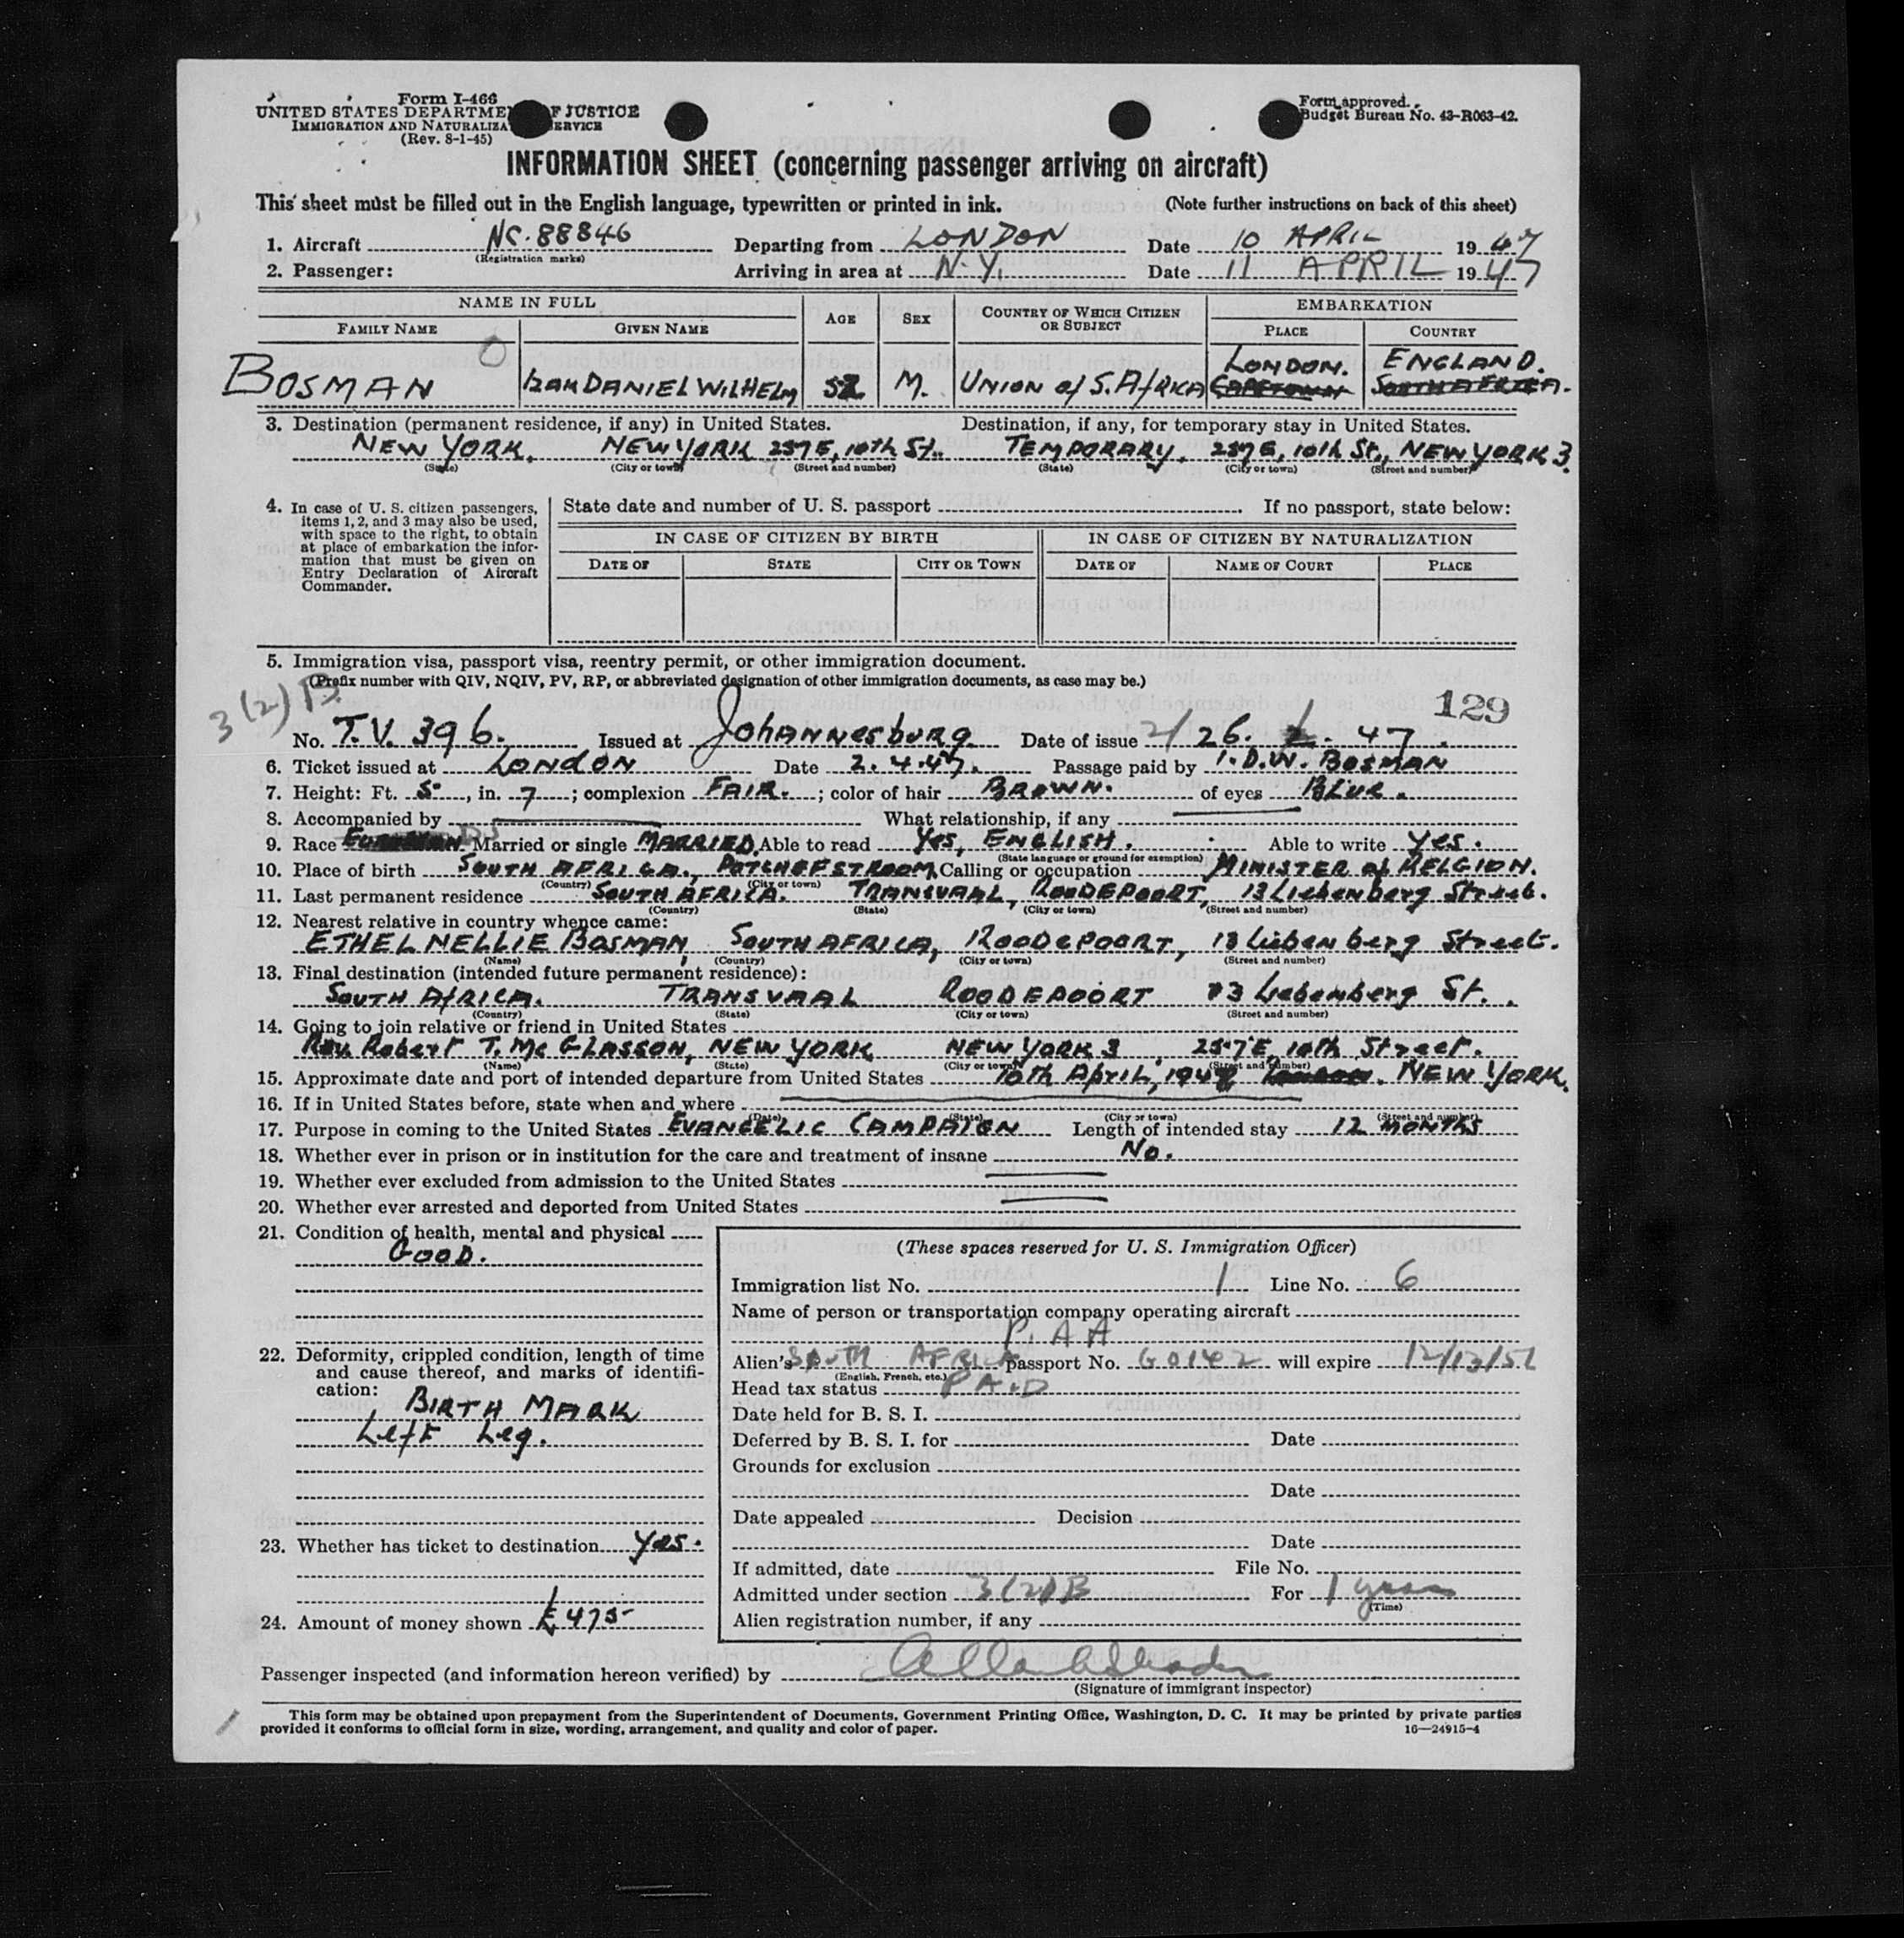 Form I-466
UNITED STATES DEPARTMENT OF JUSTICE
IMMIGRATION AND NATURALIZATION SERVICE
(Rev. 8-1-45)
Form approved.
Budget Bureau No. 43-R063-42.
INFORMATION SHEET (concerning passenger arriving on aircraft)
This sheet must be filled out in the English language, typewritten or printed in ink. (Note further instructions on back of this sheet)
1. Aircraft NC. 88846 Departing from LONDON Date 10 APRIL 1947
(Registration marks)
2. Passenger: Arriving in area at N.Y. Date 11 APRIL 1947
NAME IN FULL AGE SEX COUNTRY OF WHICH CITIZEN OR SUBJECT EMBARKATION
FAMILY NAME GIVEN NAME PLACE COUNTRY
LONDON. ENGLAND.
BOSMAN Izak DANIEL WILHELM 52 M. UNION of S. AfRICA CAPETOWN SOUTH AFRICA.
3. Destination (permanent residence, if any) in United States. Destination, if any, for temporary stay in United States.
NEW YORK. NEW YORK 257 E, 10th St.. TEMPORARY. 257 E, 10th St., NEW YORK 3.
(State) (City or town) (Street and number) (State) (City or town) (Street and number)
4. In case of U. S. citizen passengers, items 1, 2, and 3 may also be used, with space to the right, to obtain at place of embarkation the information that must be given on Entry Declaration of Aircraft Commander.
State date and number of U. S. passport If no passport, state below:
IN CASE OF CITIZEN BY BIRTH IN CASE OF CITIZEN BY NATURALIZATION
DATE OF STATE CITY OR TOWN DATE OF NAME OF COURT PLACE
5. Immigration visa, passport visa, reentry permit, or other immigration document.
(Prefix number with QIV, NQIV, PV, RP, or abbreviated designation of other immigration documents, as case may be.)
3(2)B
129
No. T.V. 396. Issued at Johannesburg Date of issue 2/26. 2. 47.
6. Ticket issued at LONDON Date 2.4.47. Passage paid by I.D.W. BOSMAN
7. Height: Ft. 5, in. 7; complexion FAIR.; color of hair BROWN. of eyes BLUE.
8. Accompanied by What relationship, if any
9. Race Married or single MARRIED. Able to read Yes, ENGLISH. Able to write Yes.
(State language or ground for exemption)
10. Place of birth SOUTH AFRICA., POTCHEFSTROOM. Calling or occupation MINISTER of RELGION.
(Country) (City or town)
11. Last permanent residence SOUTH AFRICA. TRANSVAAL, ROODEPOORT, 13 Liebenberg Street.
(Country) (State) (City or town) (Street and number)
12. Nearest relative in country whence came:
ETHEL NELLIE BOSMAN, SOUTH AFRICA, ROODEPOORT, 13 Liebenberg Street.
(Name) (Country) (City or town) (Street and number)
13. Final destination (intended future permanent residence):
SOUTH AfRICA. TRANSVAAL ROODEPOORT 13 Liebenberg St.
(Country) (State) (City or town) (Street and number)
14. Going to join relative or friend in United States
Rev. Robert T. Mc GLASSON, NEW YORK NEW YORK 3 257 E, 10th Street.
(Name) (State) (City or town) (Street and number)
15. Approximate date and port of intended departure from United States 10th April, 1948 NEW YORK.
16. If in United States before, state when and where
(Date) (State) (City or town) (Street and number)
17. Purpose in coming to the United States EVANGELIC CAMPAIGN Length of intended stay 12 MONTHS
18. Whether ever in prison or in institution for the care and treatment of insane No.
19. Whether ever excluded from admission to the United States
20. Whether ever arrested and deported from United States
21. Condition of health, mental and physical
GOOD.
22. Deformity, crippled condition, length of time and cause thereof, and marks of identification:
BIRTH MARK
Left Leg.
23. Whether has ticket to destination Yes.
24. Amount of money shown £475-
(These spaces reserved for U. S. Immigration Officer)
Immigration list No. 1 Line No. 6
Name of person or transportation company operating aircraft
P. A A
Alien's SOUTH AFRICA passport No. G0142 will expire 12/13/51
(English, French, etc.)
Head tax status PAID
Date held for B. S. I.
Deferred by B. S. I. for Date
Grounds for exclusion
Date
Date appealed Decision
Date
If admitted, date File No.
Admitted under section 3(2)B For 1 year
(Time)
Alien registration number, if any
Passenger inspected (and information hereon verified) by
(Signature of immigrant inspector)
This form may be obtained upon prepayment from the Superintendent of Documents, Government Printing Office, Washington, D. C. It may be printed by private parties
provided it conforms to official form in size, wording, arrangement, and quality and color of paper. 16—24915-4